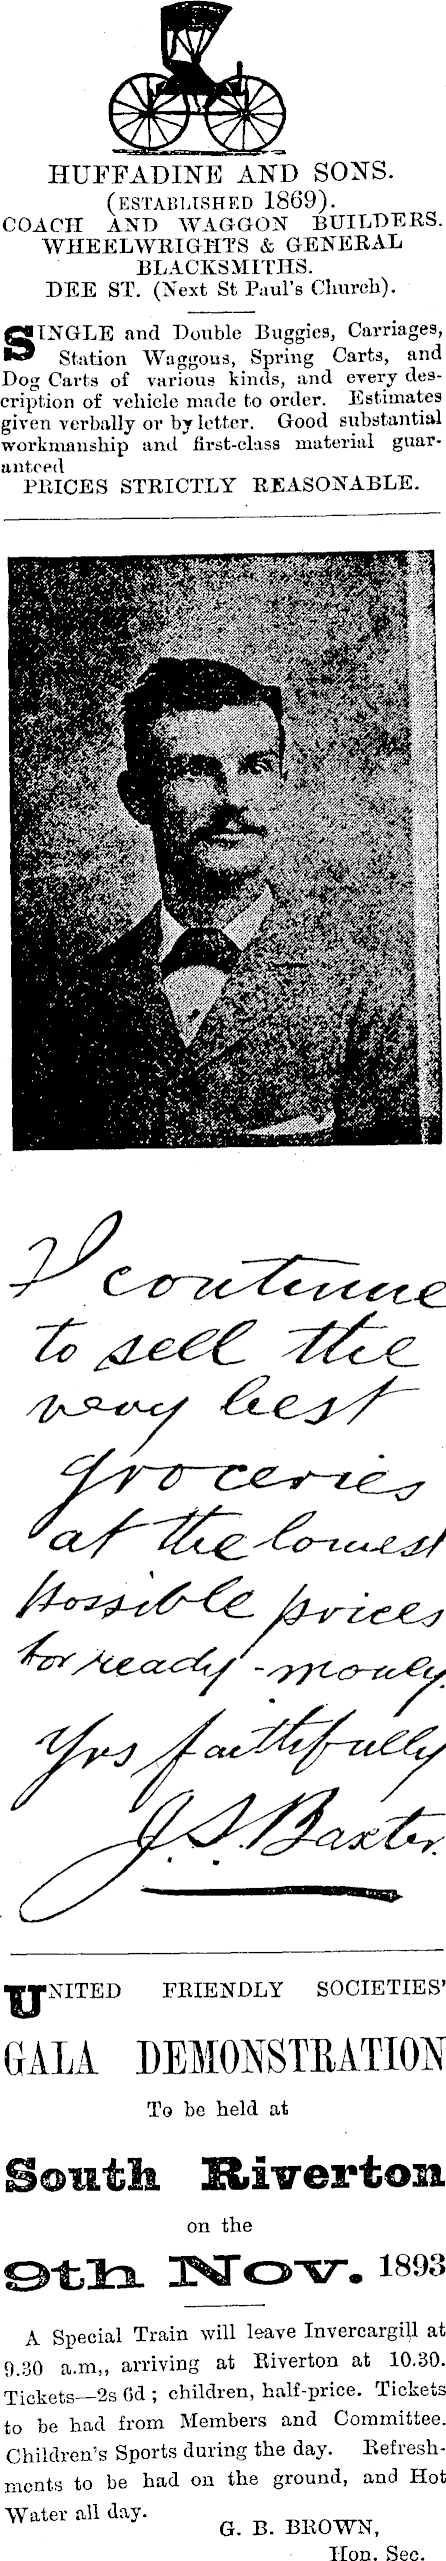 HUFFADINE AND SONS.
(ESTABLISHED 1869).
COACH AND WAGGON BUILDERS.
WHEELWRIGHTS & GENERAL
BLACKSMITHS.
DEE ST. (Next St Paul's Church).
SINGLE and Double Buggies, Carriages,
Station Waggons, Spring Carts, and
Dog Carts of various kinds, and every des-
cription of vehicle made to order. Estimates
given verbally or by letter. Good substantial
workmanship and first-class material guar-
anteed
PRICES STRICTLY REASONABLE.
I continue
to sell the
very best
groceries
at the lowest
possible prices
for ready-money.
Yrs faithfully
J. S. Baxter.
UNITED FRIENDLY SOCIETIES'
GALA DEMONSTRATION
To be held at
South Riverton
on the
9th Nov. 1893
A Special Train will leave Invercargill at
9.30 a.m,, arriving at Riverton at 10.30.
Tickets—2s 6d ; children, half-price. Tickets
to be had from Members and Committee.
Children's Sports during the day. Refresh-
ments to be had on the ground, and Hot
Water all day.
G. B. BROWN,
Hon. Sec.